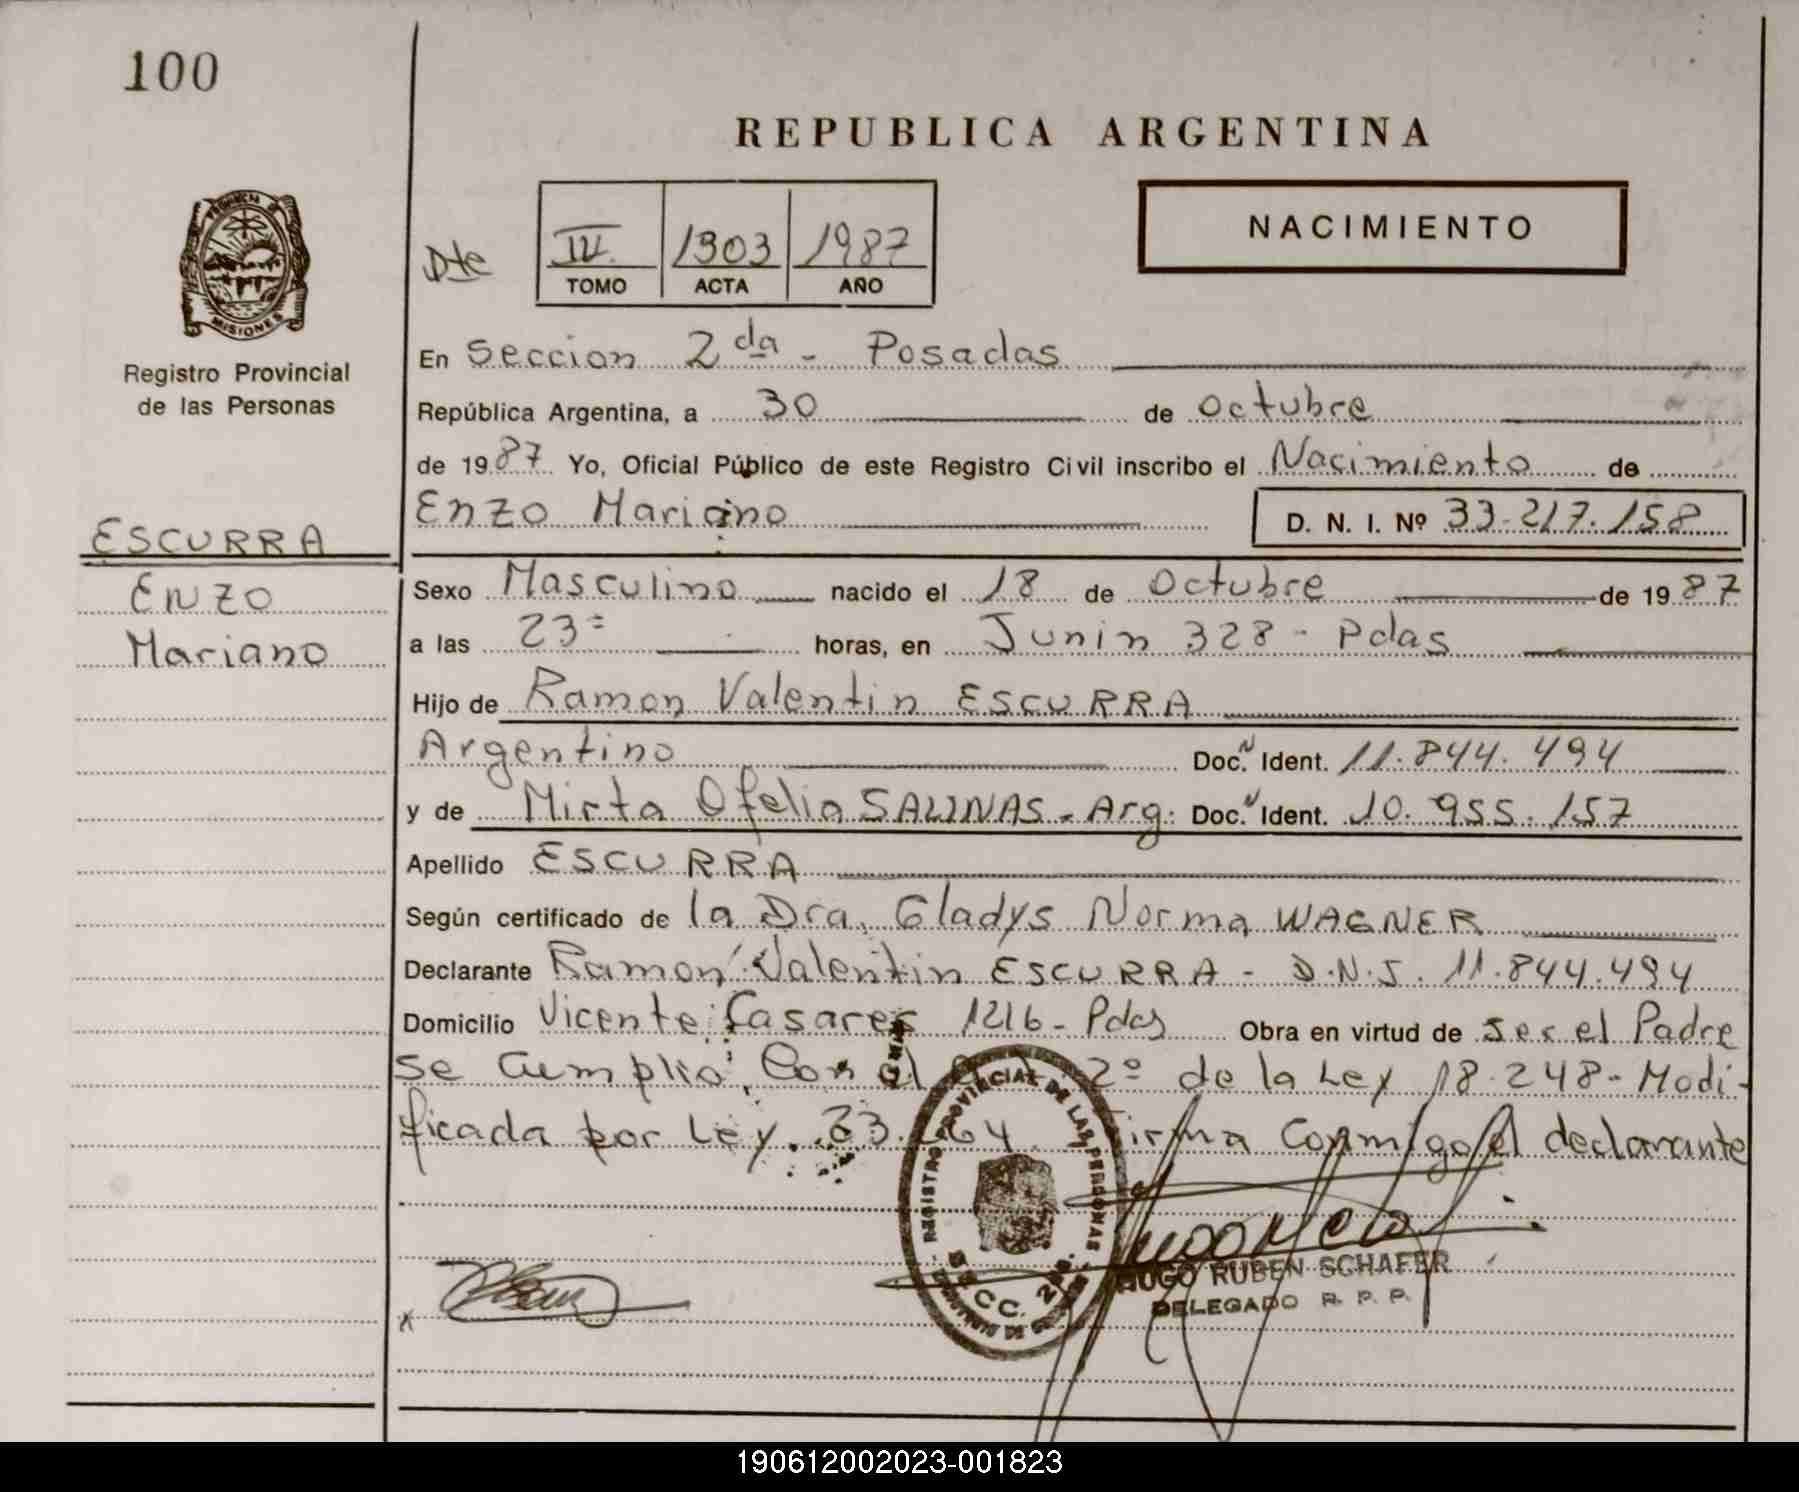 100
REPUBLICA ARGENTINA
NACIMIENTO
Dte III 1303 1987
TOMO ACTA AÑO
PROVINCIA DE
MISIONES
Registro Provincial
de las Personas
En Seccion 2da - Posadas
República Argentina, a 30 de Octubre
de 1987 Yo, Oficial Público de este Registro Civil inscribo el Nacimiento de
Enzo Mariano D. N. I. Nº 33.217.158
ESCURRA
Enzo
Mariano
Sexo Masculino nacido el 18 de Octubre de 1987
a las 23= horas, en Junin 328 - Pdas
Hijo de Ramon Valentin ESCURRA
Argentino Doc. N Ident. 11.844.494
y de Mirta Ofelia SALINAS - Arg. Doc. N Ident. 10.955.157
Apellido ESCURRA
Según certificado de la Dra. Gladys Norma WAGNER
Declarante Ramon Valentin ESCURRA - D.N.I. 11.844.494
Domicilio Vicente Casares 1216 - Pdas Obra en virtud de ser el Padre
se Cumplio Con el 2º de la Ley 18.248 - Modi-
ficada por Ley 23.264 Firma Conmigo el declarante
REGISTRO PROVINCIAL DE LAS PERSONAS
SECC. 2da.
HUGO RUBEN SCHAFER
DELEGADO R. P. P.
x
190612002023-001823